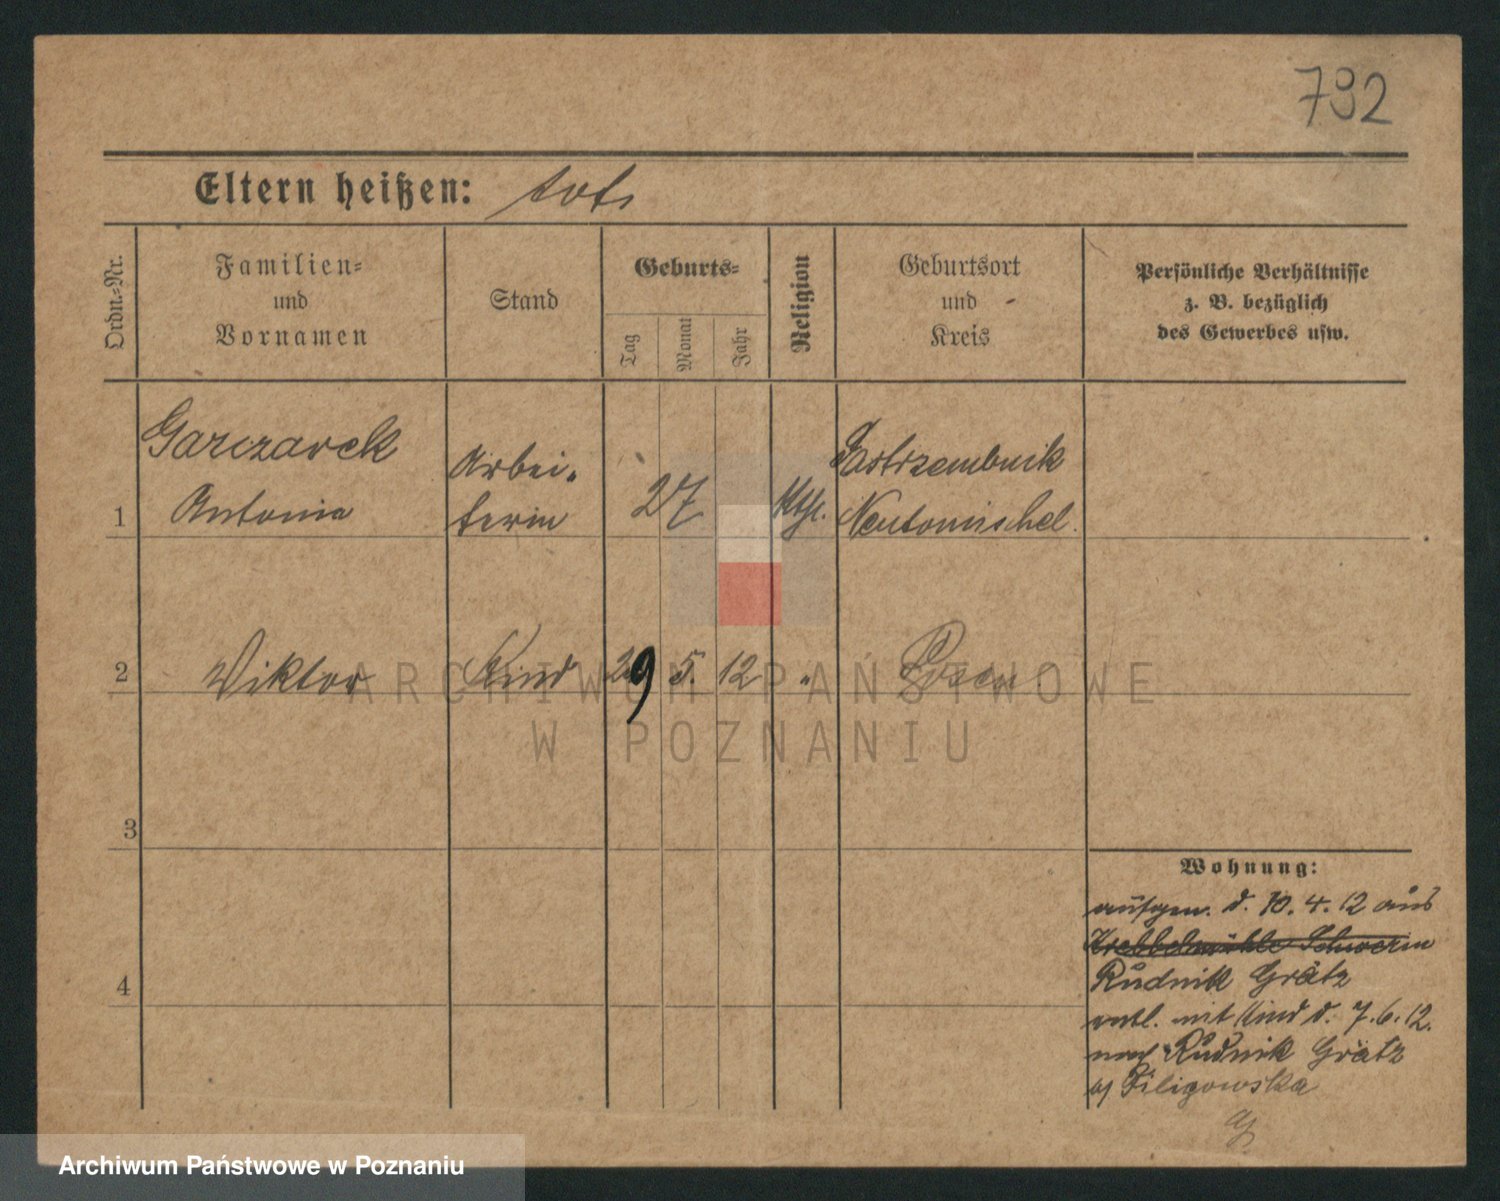 792
Eltern heißen: tot
Ordn.-Nr.
Familien-
und
Vornamen
Stand
Geburts-
Tag
Monat
Jahr
Religion
Geburtsort
und
Kreis
Persönliche Verhältnisse
z. B. bezüglich
des Gewerbes usw.
Garczarek
Arbei-
Jastrzembnik
1 Antonia terin 27 Kth. Neutomischel.
2 Viktor Kind 29 5. 12 " Posen
3
Wohnung:
aufgen. d. 10. 4. 12 aus
Schwerin
Rudnik Grätz
4
entl. mit Kind d. 7. 6. 12.
nach Rudnik Grätz
Filipowska
ARCHIWUM PAŃSTWOWE
W POZNANIU
Archiwum Państwowe w Poznaniu